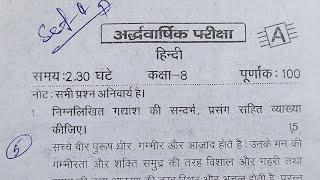 Set A
अर्द्धवार्षिक परीक्षा
A
हिन्दी
समय:2.30 घंटे कक्षा-8 पूर्णांक:100
नोट: सभी प्रश्न अनिवार्य है।
1. निम्नलिखित गद्यांश की सन्दर्भ, प्रसंग सहित व्याख्या
कीजिए। 15
5
सच्चे वीर पुरूष धीर, गम्भीर और आज़ाद होते है। उनके मन की
गम्भीरता और शक्ति समुद्र की तरह विशाल और गहरी तथा